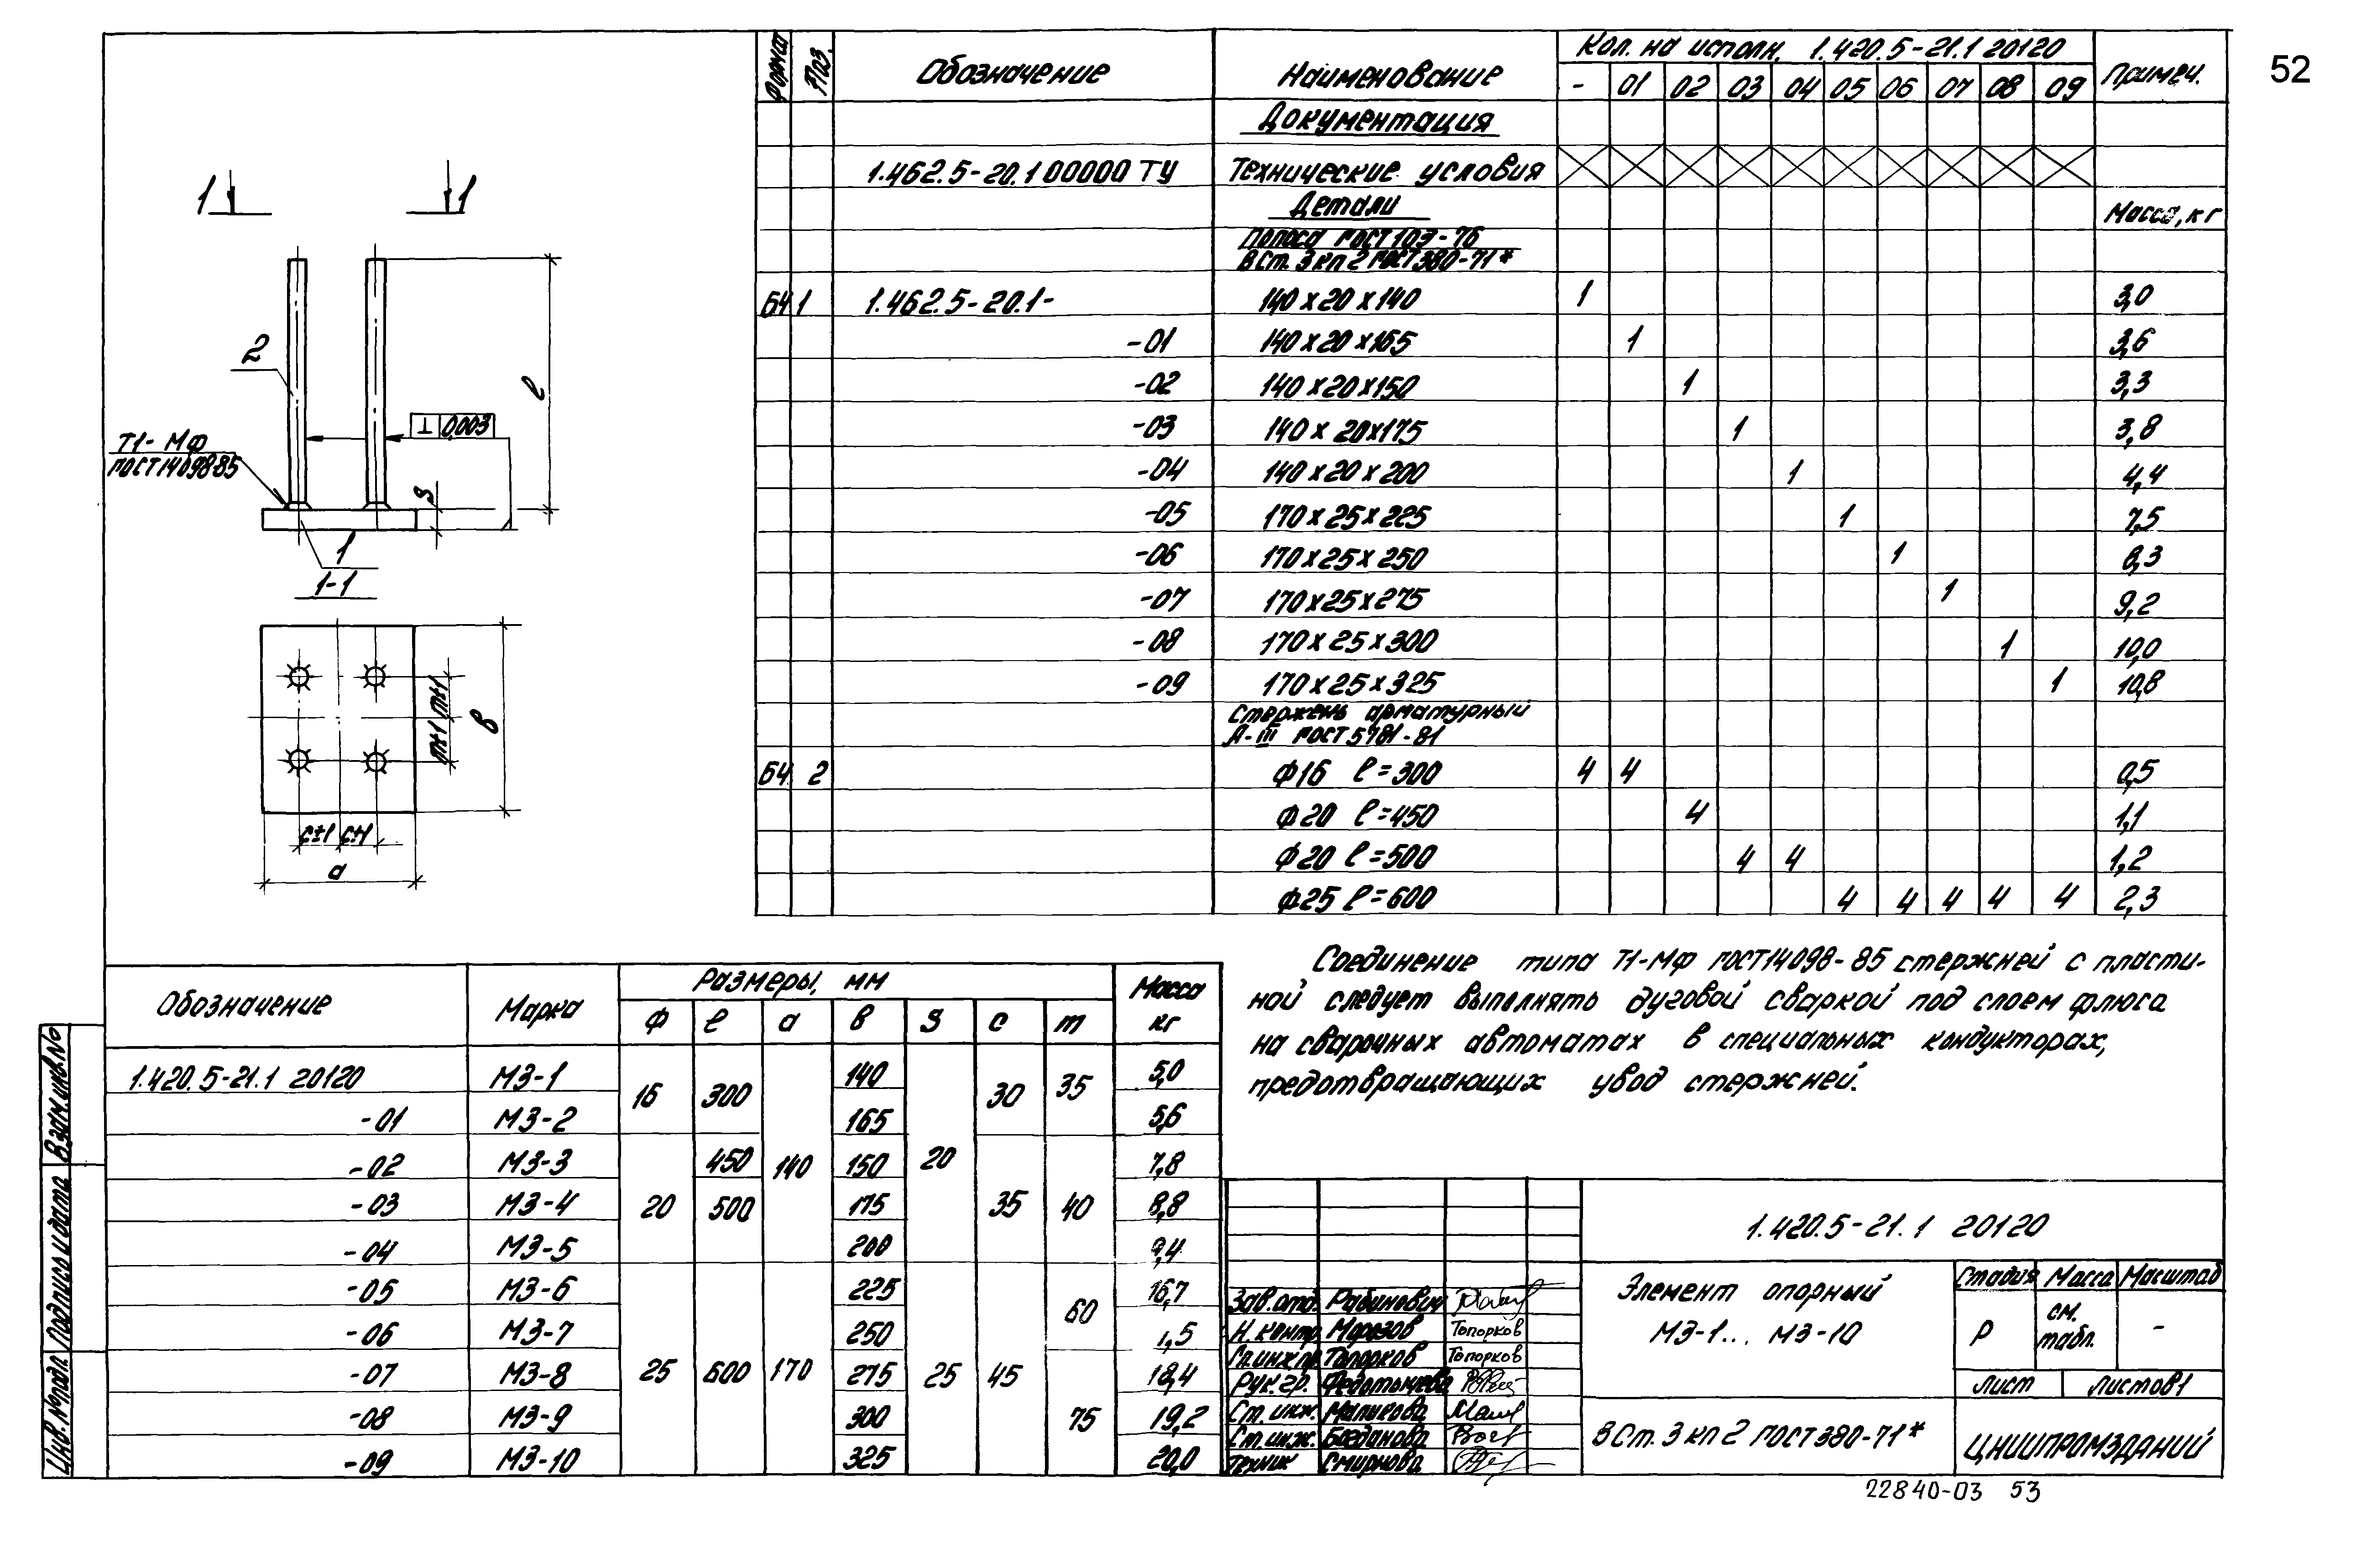 52
Формат Поз. Обозначение Наименование Кол. на исполн. 1.420.5-21.1 20120 Примеч.
- 01 02 03 04 05 06 07 08 09
Документация
1.462.5-20.1 00000 ТУ Технические условия
Детали Масса, кг
Полоса ГОСТ 103-76
ВСт. 3 кп 2 ГОСТ 380-71*
БЧ 1 1.462.5-20.1- 140х20х140 1 3,0
-01 140х20х165 1 3,6
-02 140х20х150 1 3,3
-03 140х20х175 1 3,8
-04 140х20х200 1 4,4
-05 170х25х225 1 7,5
-06 170х25х250 1 8,3
-07 170х25х275 1 9,2
-08 170х25х300 1 10,0
-09 170х25х325 1 10,8
Стержень арматурный
А-III ГОСТ 5781-81
БЧ 2 ф16 ℓ=300 4 4 0,5
ф20 ℓ=450 4 1,1
ф20 ℓ=500 4 4 1,2
ф25 ℓ=600 4 4 4 4 4 2,3
1 1
2
ℓ
⊥ 0,003
Т1-Мф
ГОСТ 14098-85
S
1
1-1
m±1 m±1
в
c±1 c±1
а
Соединение типа Т1-Мф ГОСТ 14098-85 стержней с пласти-
ной следует выполнять дуговой сваркой под слоем флюса
на сварочных автоматах в специальных кондукторах,
предотвращающих увод стержней.
Обозначение Марка Размеры, мм Масса кг
ф ℓ а в S c m
1.420.5-21.1 20120 МЗ-1 16 300 140 140 20 30 35 5,0
-01 МЗ-2 165 5,6
-02 МЗ-3 20 450 150 35 40 7,8
-03 МЗ-4 500 175 8,8
-04 МЗ-5 200 9,4
-05 МЗ-6 25 600 170 225 25 45 60 16,7
-06 МЗ-7 250 ,5
-07 МЗ-8 275 18,4
-08 МЗ-9 300 75 19,2
-09 МЗ-10 325 20,0
Взам.инв.№
Подпись и дата
Инв.№подл.
1.420.5-21.1 20120
Зав.отд. Рабинович
Н.контр. Морозов Топорков
Гл.инж.пр. Топорков Топорков
Рук.гр.
Ст.инж. Маликова
Ст.инж. Богданова
Техник Смирнова
Элемент опорный
МЗ-1... МЗ-10
Стадия Масса Масштаб
Р см. табл. -
Лист Листов 1
ВСт. 3 кп 2 ГОСТ 380-71*
ЦНИИПРОМЗДАНИЙ
22840-03 53